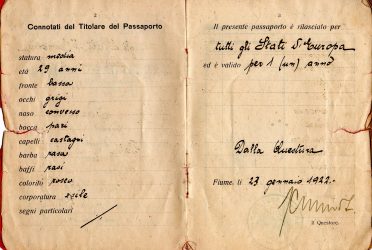 2
Connotati del Titolare del Passaporto
statura media
età 29 anni
fronte bassa
occhi grigi
naso convesso
bocca pari
capelli castagni
barba rasa
baffi rasi
colorito roseo
corporatura
segni particolari
2
Il presente passaporto è rilasciato per
tutti gli Stati d'Europa
ed è valido per 1 (un) anno
Dalla Questura
Fiume, li 23 gennaio 1922.
Il Questore.